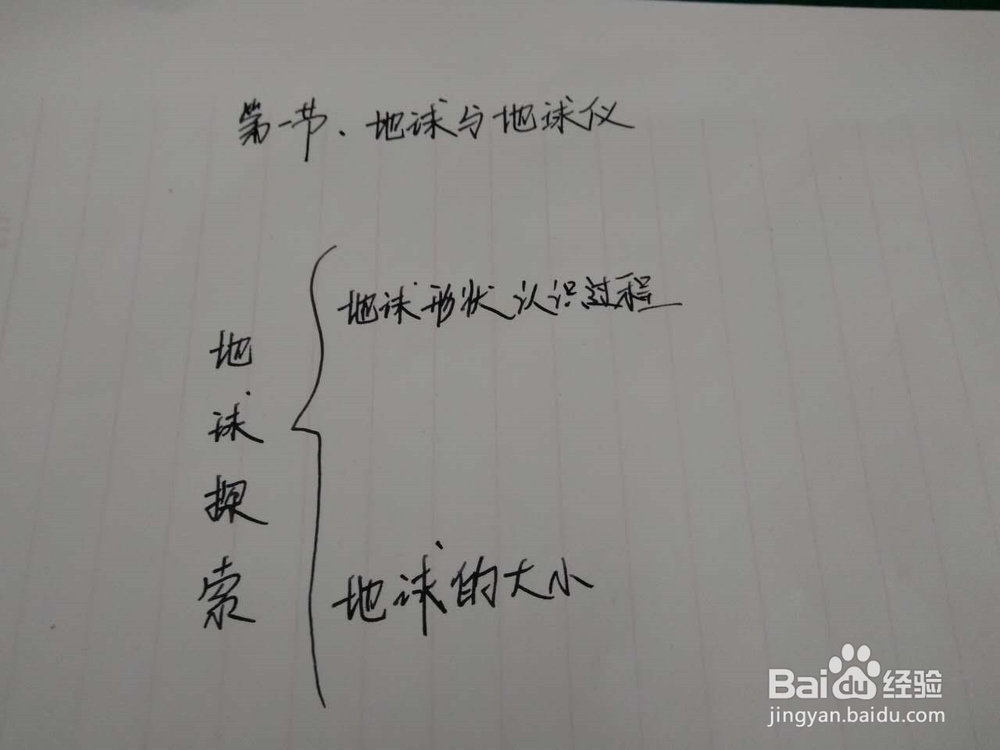 第一节、地球与地球仪
地球形状认识过程
地球探索
地球的大小
Baidu经验
jingyan.baidu.com